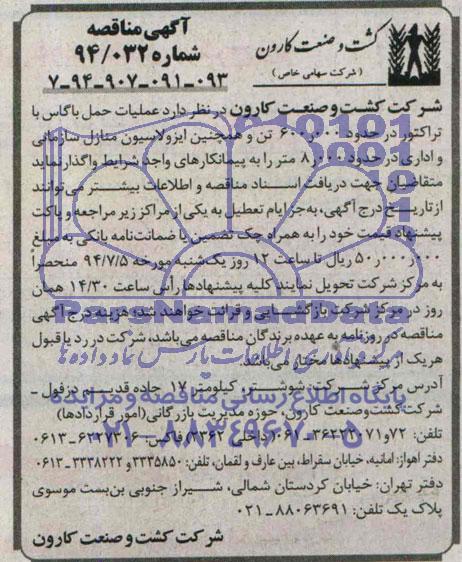 کشت و صنعت کارون
(شرکت سهامی خاص)
آگهی مناقصه
شماره ۹۴/۰۳۲
۷-۹۴-۹۰۷-۰۹۱-۰۹۳
شرکت کشت و صنعت کارون در نظر دارد عملیات حمل باگاس با
تراکتور در حدود ۶۰۰٫۰۰۰ تن و همچنین ایزولاسیون منازل سازمانی
و اداری در حدود ۸٫۰۰۰ متر را به پیمانکارهای واجد شرایط واگذار نماید
متقاضیان جهت دریافت اسناد مناقصه و اطلاعات بیشتر می‌توانند
از تاریخ درج آگهی، به‌جز ایام تعطیل به یکی از مراکز زیر مراجعه و پاکت
پیشنهاد قیمت خود را به همراه چک تضمین یا ضمانت‌نامه بانکی به مبلغ
۵۰٫۰۰۰٫۰۰۰ ریال تا ساعت ۱۲ روز یک‌شنبه مورخه ۹۴/۷/۵ منحصراً
به مرکز شرکت تحویل نمایند کلیه پیشنهادها رأس ساعت ۱۴/۳۰ همان
روز در مرکز شرکت بازگشایی و قرائت خواهند شد، هزینه درج آگهی
مناقصه در روزنامه به عهده برندگان مناقصه می‌باشد، شرکت در رد یا قبول
هریک از پیشنهادها مختار می‌باشد.
آدرس مرکز شرکت: شوشتر، کیلومتر ۱۷ جاده قدیم دزفول-
شرکت کشت‌وصنعت کارون، حوزه مدیریت بازرگانی(امور قراردادها)
تلفن: ۷۲و۷۱ داخلی ۲۳۶۲ فاکس ۶۲۲۷۳۰۶-۰۶۱۳
دفتر اهواز: امانیه، خیابان سقراط، بین عارف و لقمان، تلفن: ۳۳۳۵۸۵۰ و ۳۳۳۸۲۲۲-۰۶۱۳
دفتر تهران: خیابان کردستان شمالی، شیراز جنوبی بن‌بست موسوی
پلاک یک تلفن: ۸۸۰۶۳۶۹۱-۰۲۱
شرکت کشت و صنعت کارون
ParsNamadData
مرکز فرآوری اطلاعات پارس نماد داده‌ها
پایگاه اطلاع رسانی مناقصه و مزایده
۰۲۱-۸۸۳۴۹۶۷۰-۵